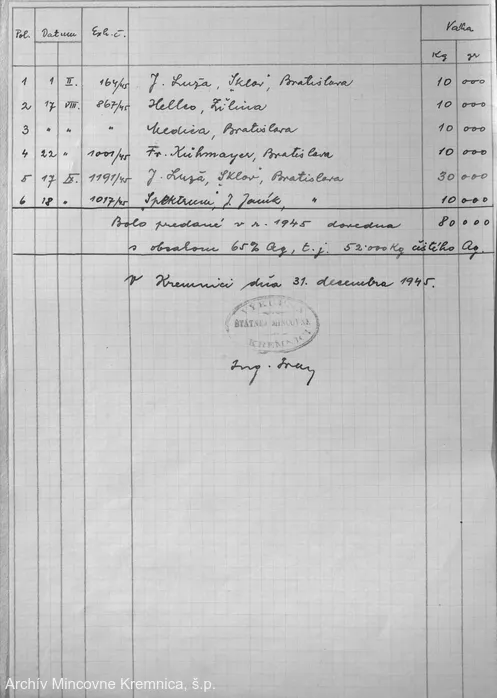 Pol. Datum Exh.č. Váha
Kg gr
1 1 II. 164/45 J. Luža, "Sklo", Bratislava 10 000
2 17 VIII. 867/45 Helleo, Žilina 10 000
3 " " " Medica, Bratislava 10 000
4 22 " 1001/45 Fr. Kühmayer, Bratislava 10 000
5 17 IX. 1191/45 J. Luža, "Sklo", Bratislava 30 000
6 18 " 1057/45 "Spektrum", J. Janík, " 10 000
Bolo predané v r. 1945 dovedna 80 000
s obsahom 65% Ag, t. j. 52·000 Kg čistého Ag.
V Kremnici dňa 31. decembra 1945.
ŠTÁTNA MINCOVŇA
KREMNICA
Ing.
Archív Mincovne Kremnica, š.p.